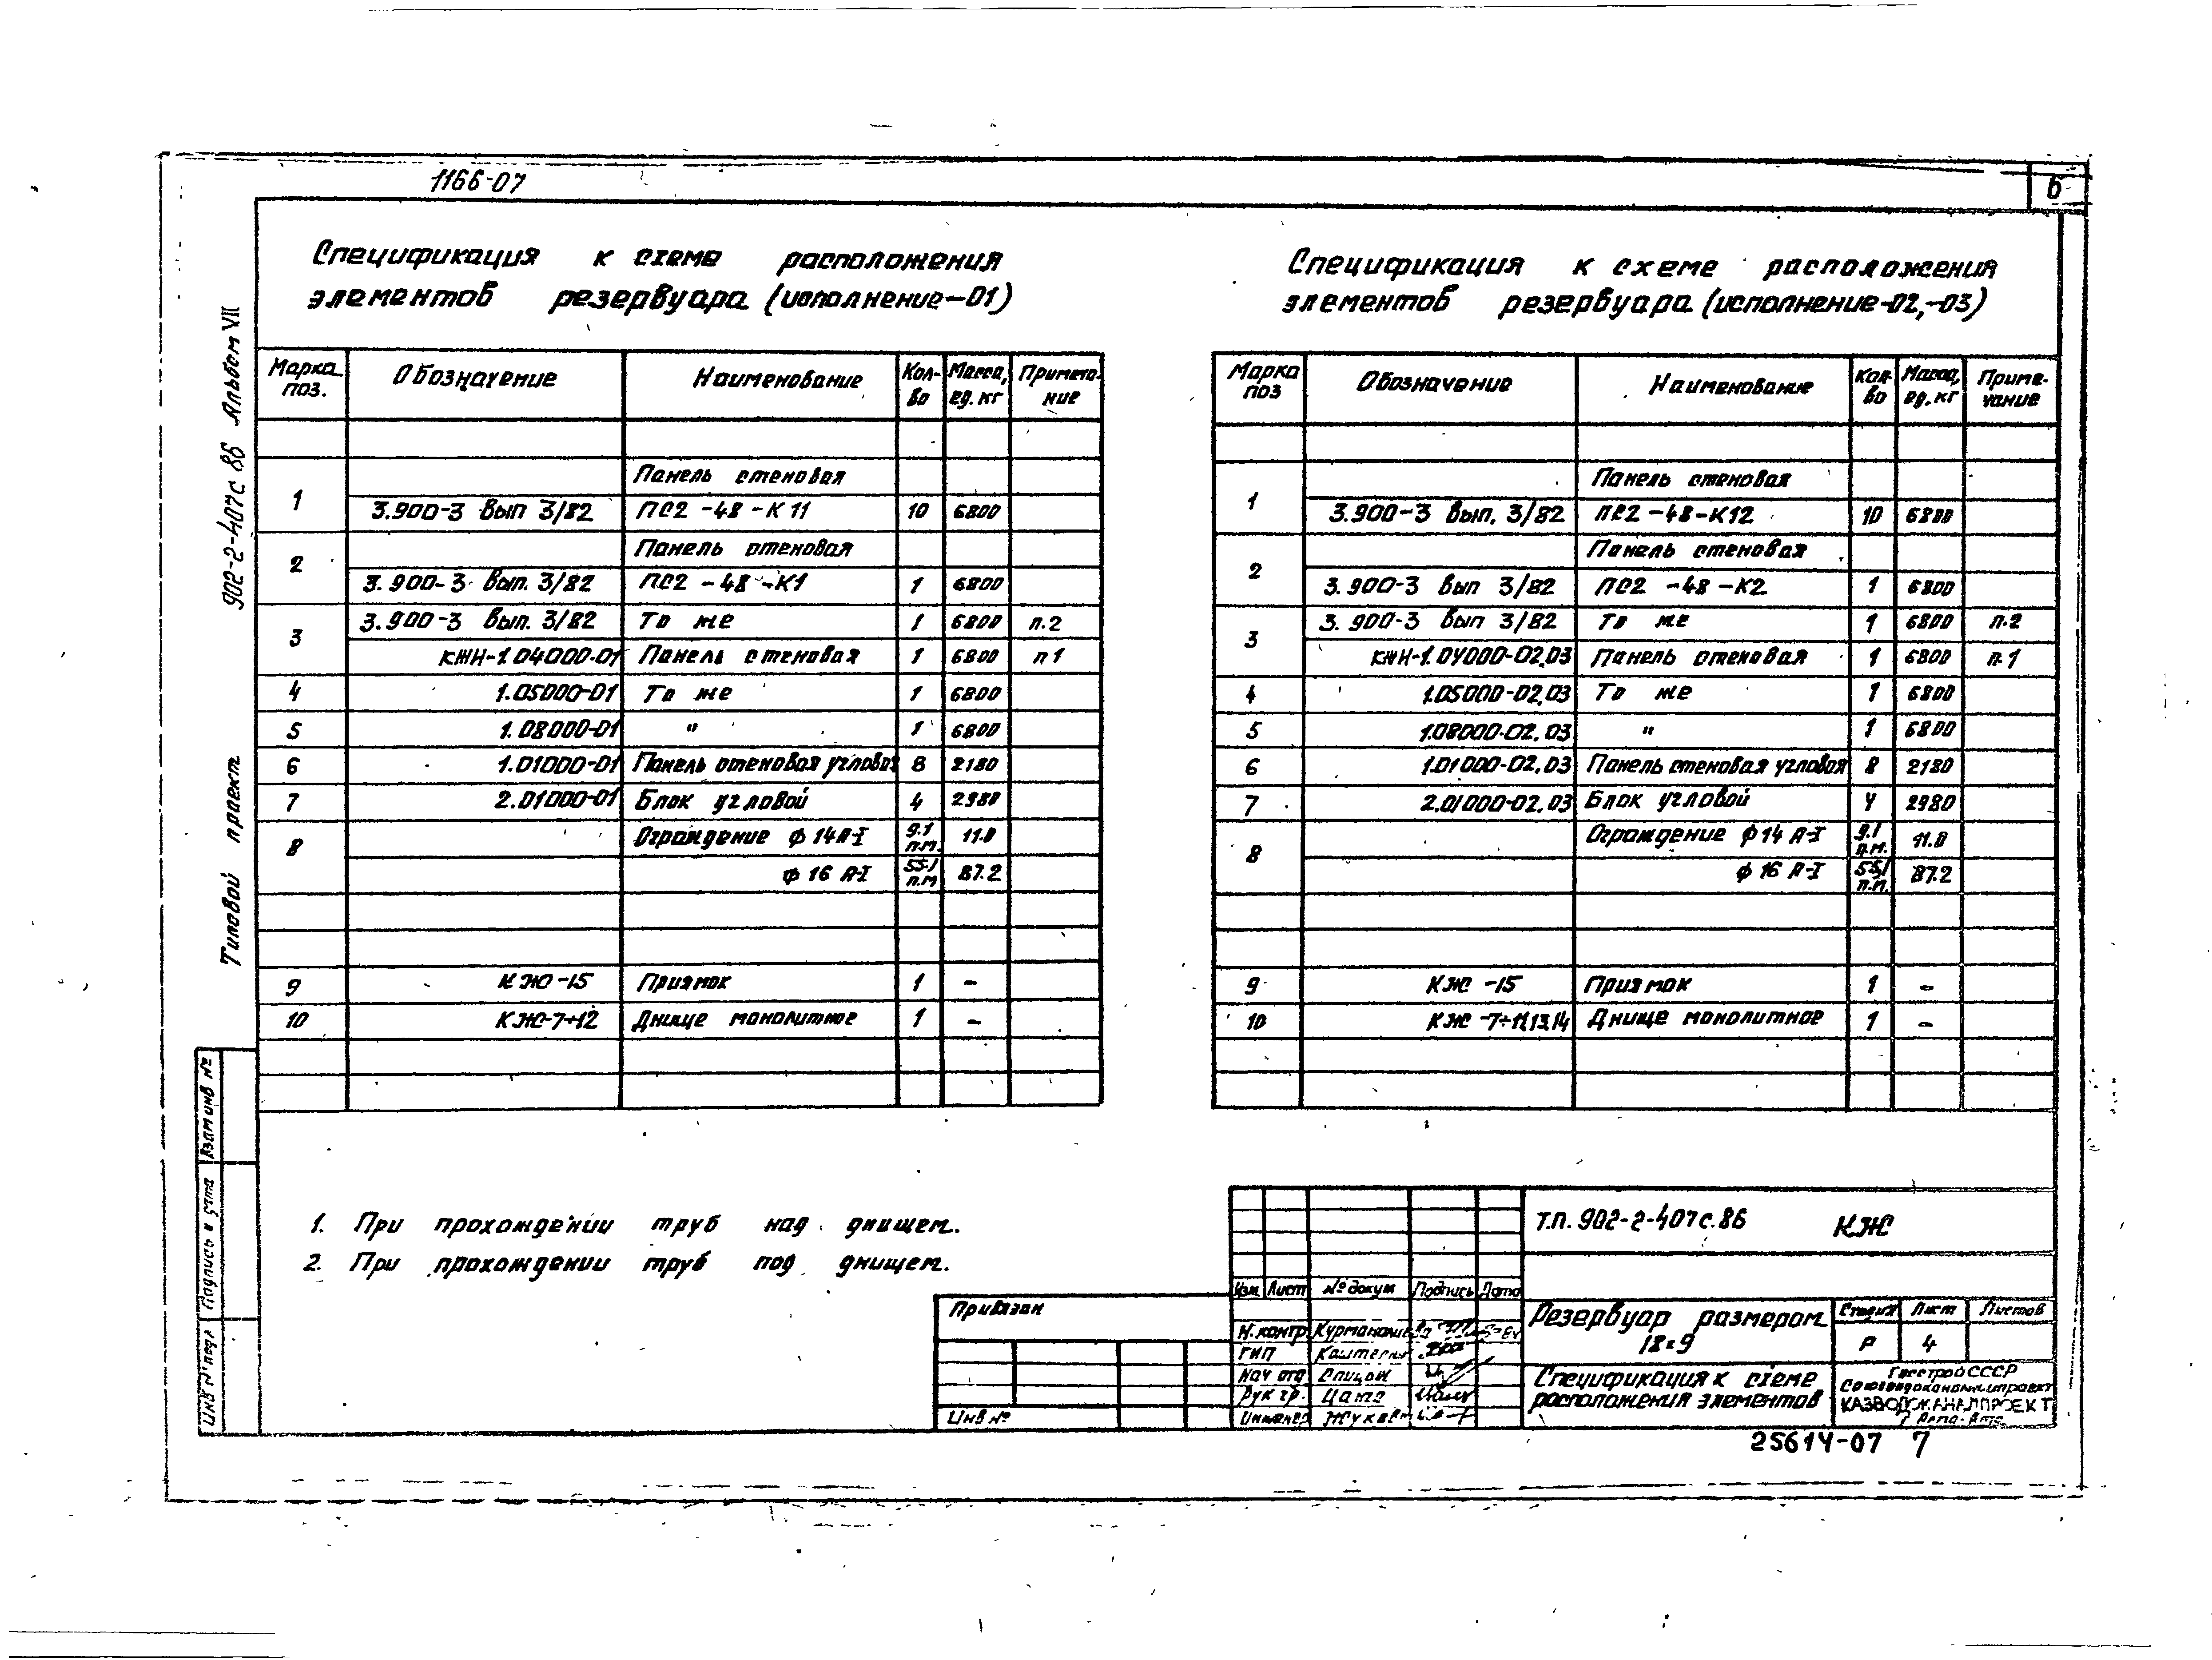 1166-07
6
Типовой проект 902-2-407с 86 Альбом VII
Спецификация к схеме расположения
элементов резервуара (исполнение-01)
Марка поз. Обозначение Наименование Кол-во Масса, ед. кг Примечание
Панель стеновая
1 3.900-3 Вып 3/82 ПС2-48-К11 10 6800
Панель стеновая
2 3.900-3 Вып. 3/82 ПС2-48-К1 1 6800
3 3.900-3 Вып. 3/82 То же 1 6800 п.2
КЖИ-1.04000-01 Панель стеновая 1 6800 п1
4 1.05000-01 То же 1 6800
5 1.08000-01 " 1 6800
6 1.01000-01 Панель стеновая угловая 8 2180
7 2.01000-01 Блок угловой 4 2980
8 Ограждение ф 14 А-I 9.1 п.м. 11.0
ф 16 А-I 55.1 п.м 87.2
9 КЖ-15 Приямок 1 -
10 КЖ-7÷12 Днище монолитное 1 -
Спецификация к схеме расположения
элементов резервуара (исполнение-02,-03)
Марка поз Обозначение Наименование Кол-во Масса, ед. кг Примечание
Панель стеновая
1 3.900-3 Вып. 3/82 ПС2-48-К12 10 6800
Панель стеновая
2 3.900-3 Вып 3/82 ПС2-48-К2 1 6800
3 3.900-3 Вып 3/82 То же 1 6800 п.2
КЖИ-1.04000-02,03 Панель стеновая 1 6800 п.1
4 1.05000-02,03 То же 1 6800
5 1.08000-02,03 " 1 6800
6 1.01000-02,03 Панель стеновая угловая 8 2180
7 2.01000-02,03 Блок угловой 4 2980
8 Ограждение ф 14 А-I 9.1 п.м. 11.0
ф 16 А-I 55.1 п.м. 87.2
9 КЖ-15 Приямок 1 -
10 КЖ-7÷11,13,14 Днище монолитное 1 -
1. При прохождении труб над днищем.
2. При прохождении труб под днищем.
Взам инв №
Подпись и дата
Инв № подл
Привязан
Инв №
Изм Лист № докум Подпись Дата
Н.контр
ГИП
Нач отд
Рук гр. Цата
Инженер
Т.П. 902-2-407с.86 КЖ
Резервуар размером
18×9
Стадия Лист Листов
Р 4
Спецификация к схеме
расположения элементов
Госстрой СССР
Союзводоканалниипроект
КАЗВОДОКАНАЛПРОЕКТ
г Алма-Ата
25614-07 7